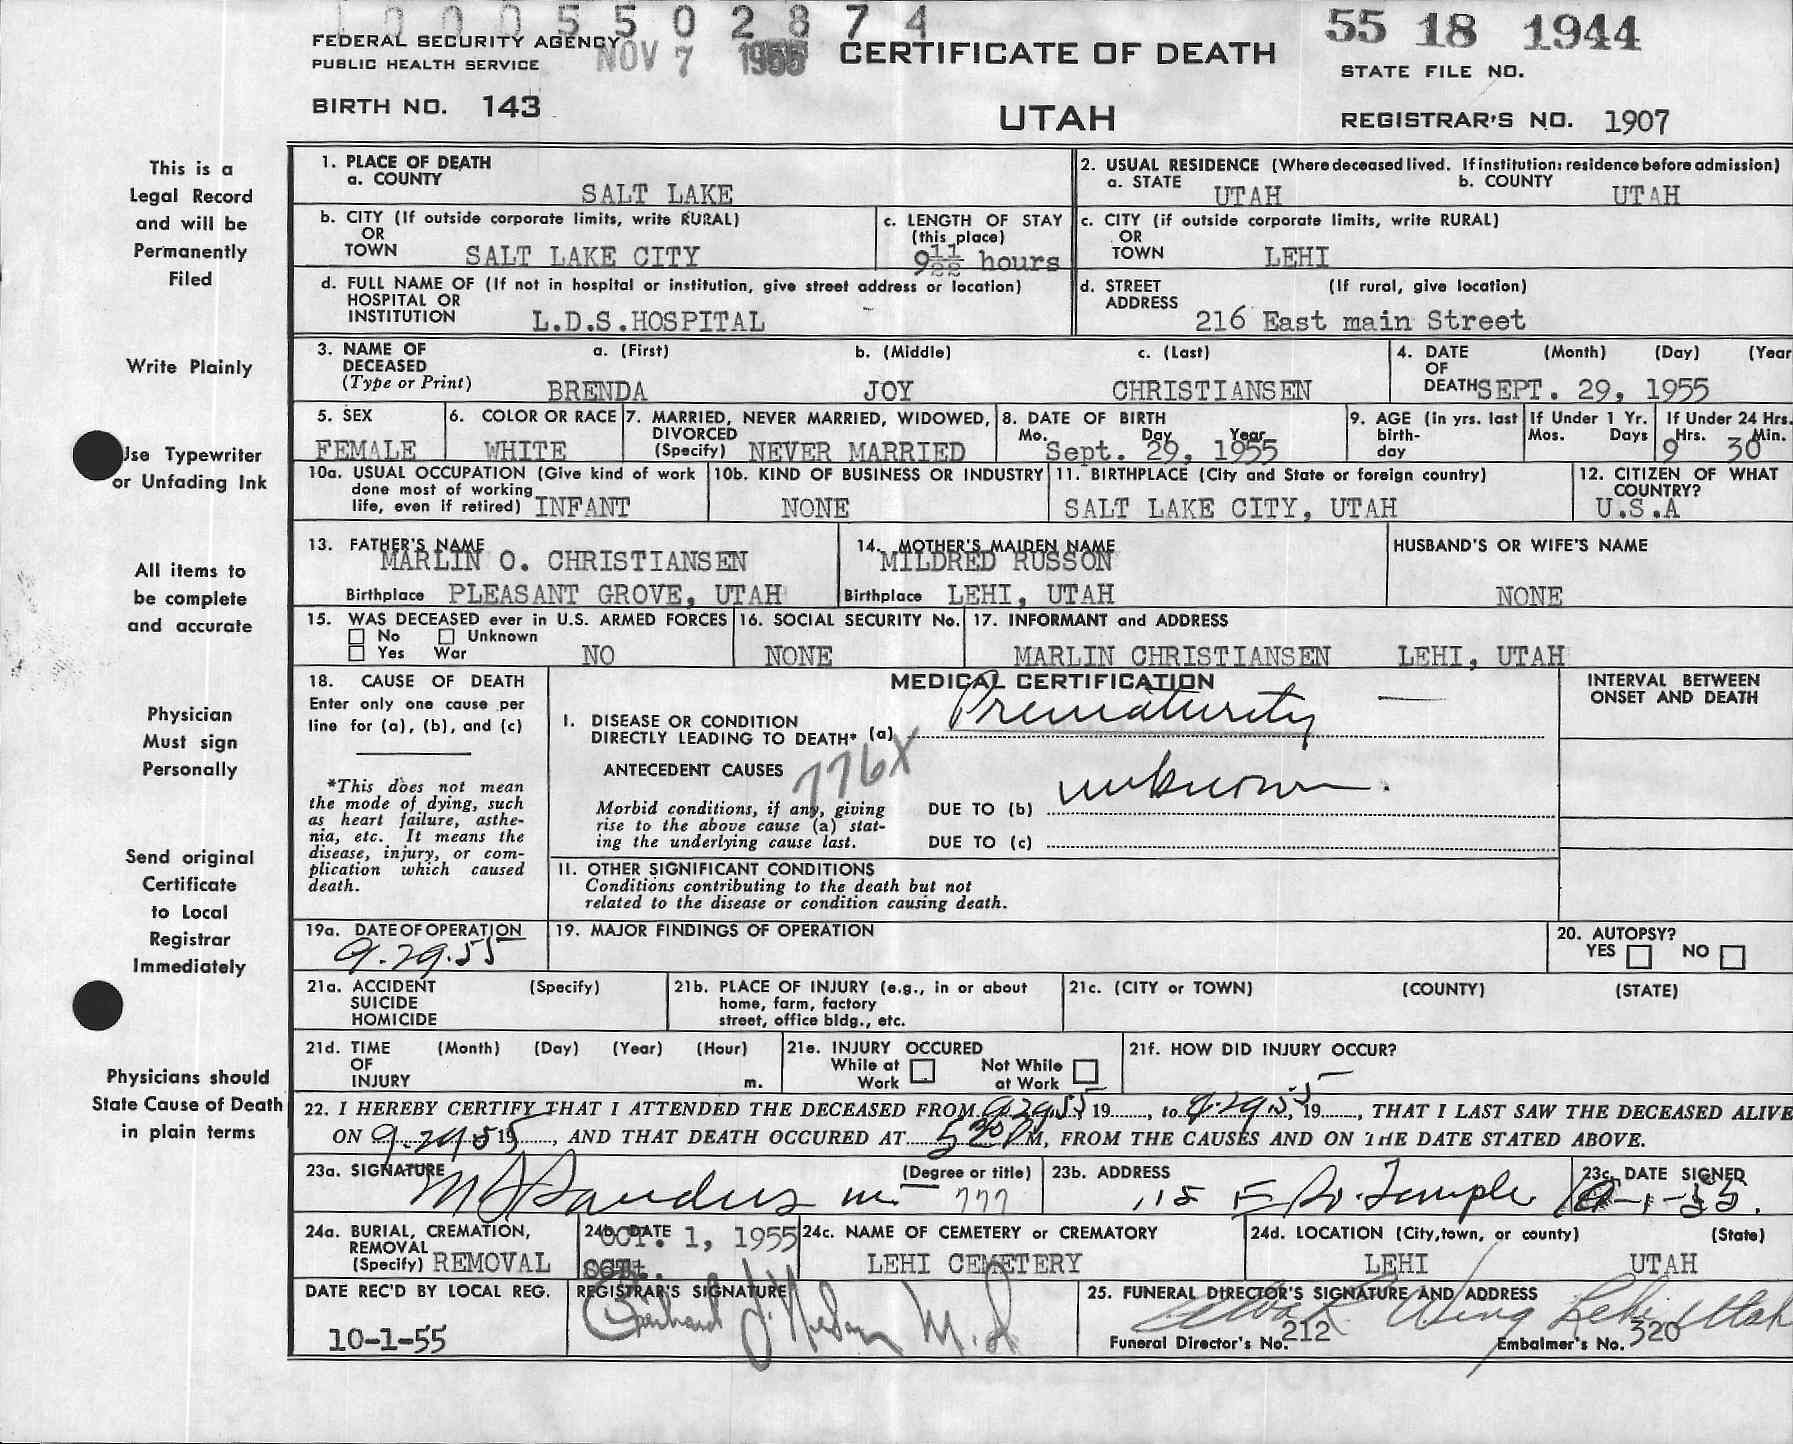 1 0 0 0 5 5 0 2 8 7 4
55 18 1944
FEDERAL SECURITY AGENCY
PUBLIC HEALTH SERVICE
NOV 7 1955
CERTIFICATE OF DEATH
STATE FILE NO.
BIRTH NO. 143
UTAH
REGISTRAR'S NO. 1907
This is a
Legal Record
and will be
Permanently
Filed
Write Plainly
Use Typewriter
or Unfading Ink
All items to
be complete
and accurate
Physician
Must sign
Personally
Send original
Certificate
to Local
Registrar
Immediately
Physicians should
State Cause of Death
in plain terms
1. PLACE OF DEATH
a. COUNTY
SALT LAKE
2. USUAL RESIDENCE (Where deceased lived. If institution: residence before admission)
a. STATE UTAH b. COUNTY UTAH
b. CITY (If outside corporate limits, write RURAL)
OR
TOWN SALT LAKE CITY
c. LENGTH OF STAY
(this place)
9 hours
c. CITY (if outside corporate limits, write RURAL)
OR
TOWN LEHI
d. FULL NAME OF (If not in hospital or institution, give street address or location)
HOSPITAL OR
INSTITUTION L.D.S.HOSPITAL
d. STREET (If rural, give location)
ADDRESS
216 East main Street
3. NAME OF a. (First) b. (Middle) c. (Last)
DECEASED
(Type or Print) BRENDA JOY CHRISTIANSEN
4. DATE (Month) (Day) (Year
OF
DEATH SEPT. 29, 1955
5. SEX
FEMALE
6. COLOR OR RACE
WHITE
7. MARRIED, NEVER MARRIED, WIDOWED,
DIVORCED
(Specify) NEVER MARRIED
8. DATE OF BIRTH
Mo. Day Year
Sept. 29, 1955
9. AGE (in yrs. last
birth-
day
If Under 1 Yr.
Mos. Days
If Under 24 Hrs.
Hrs. Min.
9 30
10a. USUAL OCCUPATION (Give kind of work
done most of working
life, even if retired) INFANT
10b. KIND OF BUSINESS OR INDUSTRY
NONE
11. BIRTHPLACE (City and State or foreign country)
SALT LAKE CITY, UTAH
12. CITIZEN OF WHAT
COUNTRY?
U.S.A
13. FATHER'S NAME
MARLIN O. CHRISTIANSEN
Birthplace PLEASANT GROVE, UTAH
14. MOTHER'S MAIDEN NAME
MILDRED RUSSON
Birthplace LEHI, UTAH
HUSBAND'S OR WIFE'S NAME
NONE
15. WAS DECEASED ever in U.S. ARMED FORCES
No Unknown
Yes War NO
16. SOCIAL SECURITY No.
NONE
17. INFORMANT and ADDRESS
MARLIN CHRISTIANSEN LEHI, UTAH
18. CAUSE OF DEATH
Enter only one cause per
line for (a), (b), and (c)
*This does not mean
the mode of dying, such
as heart failure, asthe-
nia, etc. It means the
disease, injury, or com-
plication which caused
death.
MEDICAL CERTIFICATION
I. DISEASE OR CONDITION
DIRECTLY LEADING TO DEATH* (a) Prematurity
ANTECEDENT CAUSES 776X
Morbid conditions, if any, giving
rise to the above cause (a) stat-
ing the underlying cause last.
DUE TO (b) unknown.
DUE TO (c)
II. OTHER SIGNIFICANT CONDITIONS
Conditions contributing to the death but not
related to the disease or condition causing death.
INTERVAL BETWEEN
ONSET AND DEATH
19a. DATE OF OPERATION
9.29.55
19. MAJOR FINDINGS OF OPERATION
20. AUTOPSY?
YES NO
21a. ACCIDENT (Specify)
SUICIDE
HOMICIDE
21b. PLACE OF INJURY (e.g., in or about
home, farm, factory
street, office bldg., etc.
21c. (CITY or TOWN) (COUNTY) (STATE)
21d. TIME (Month) (Day) (Year) (Hour)
OF
INJURY m.
21e. INJURY OCCURED
While at Not While
Work at Work
21f. HOW DID INJURY OCCUR?
22. I HEREBY CERTIFY THAT I ATTENDED THE DECEASED FROM 9.29.55 19......., to 9.29.55, 19......., THAT I LAST SAW THE DECEASED ALIVE
ON 9.29.55 19......., AND THAT DEATH OCCURED AT 5:30 PM, FROM THE CAUSES AND ON THE DATE STATED ABOVE.
23a. SIGNATURE (Degree or title)
Sanders 777
23b. ADDRESS
115 E So. Temple
23c. DATE SIGNED
10-1-55.
24a. BURIAL, CREMATION,
REMOVAL
(Specify) REMOVAL
24b. DATE
OCT. 1, 1955
24c. NAME OF CEMETERY or CREMATORY
LEHI CEMETERY
24d. LOCATION (City, town, or county) (State)
LEHI UTAH
DATE REC'D BY LOCAL REG.
10-1-55
REGISTRAR'S SIGNATURE
M.D.
25. FUNERAL DIRECTOR'S SIGNATURE AND ADDRESS
Wing Lehi Utah
Funeral Director's No. 212
Embalmer's No. 320